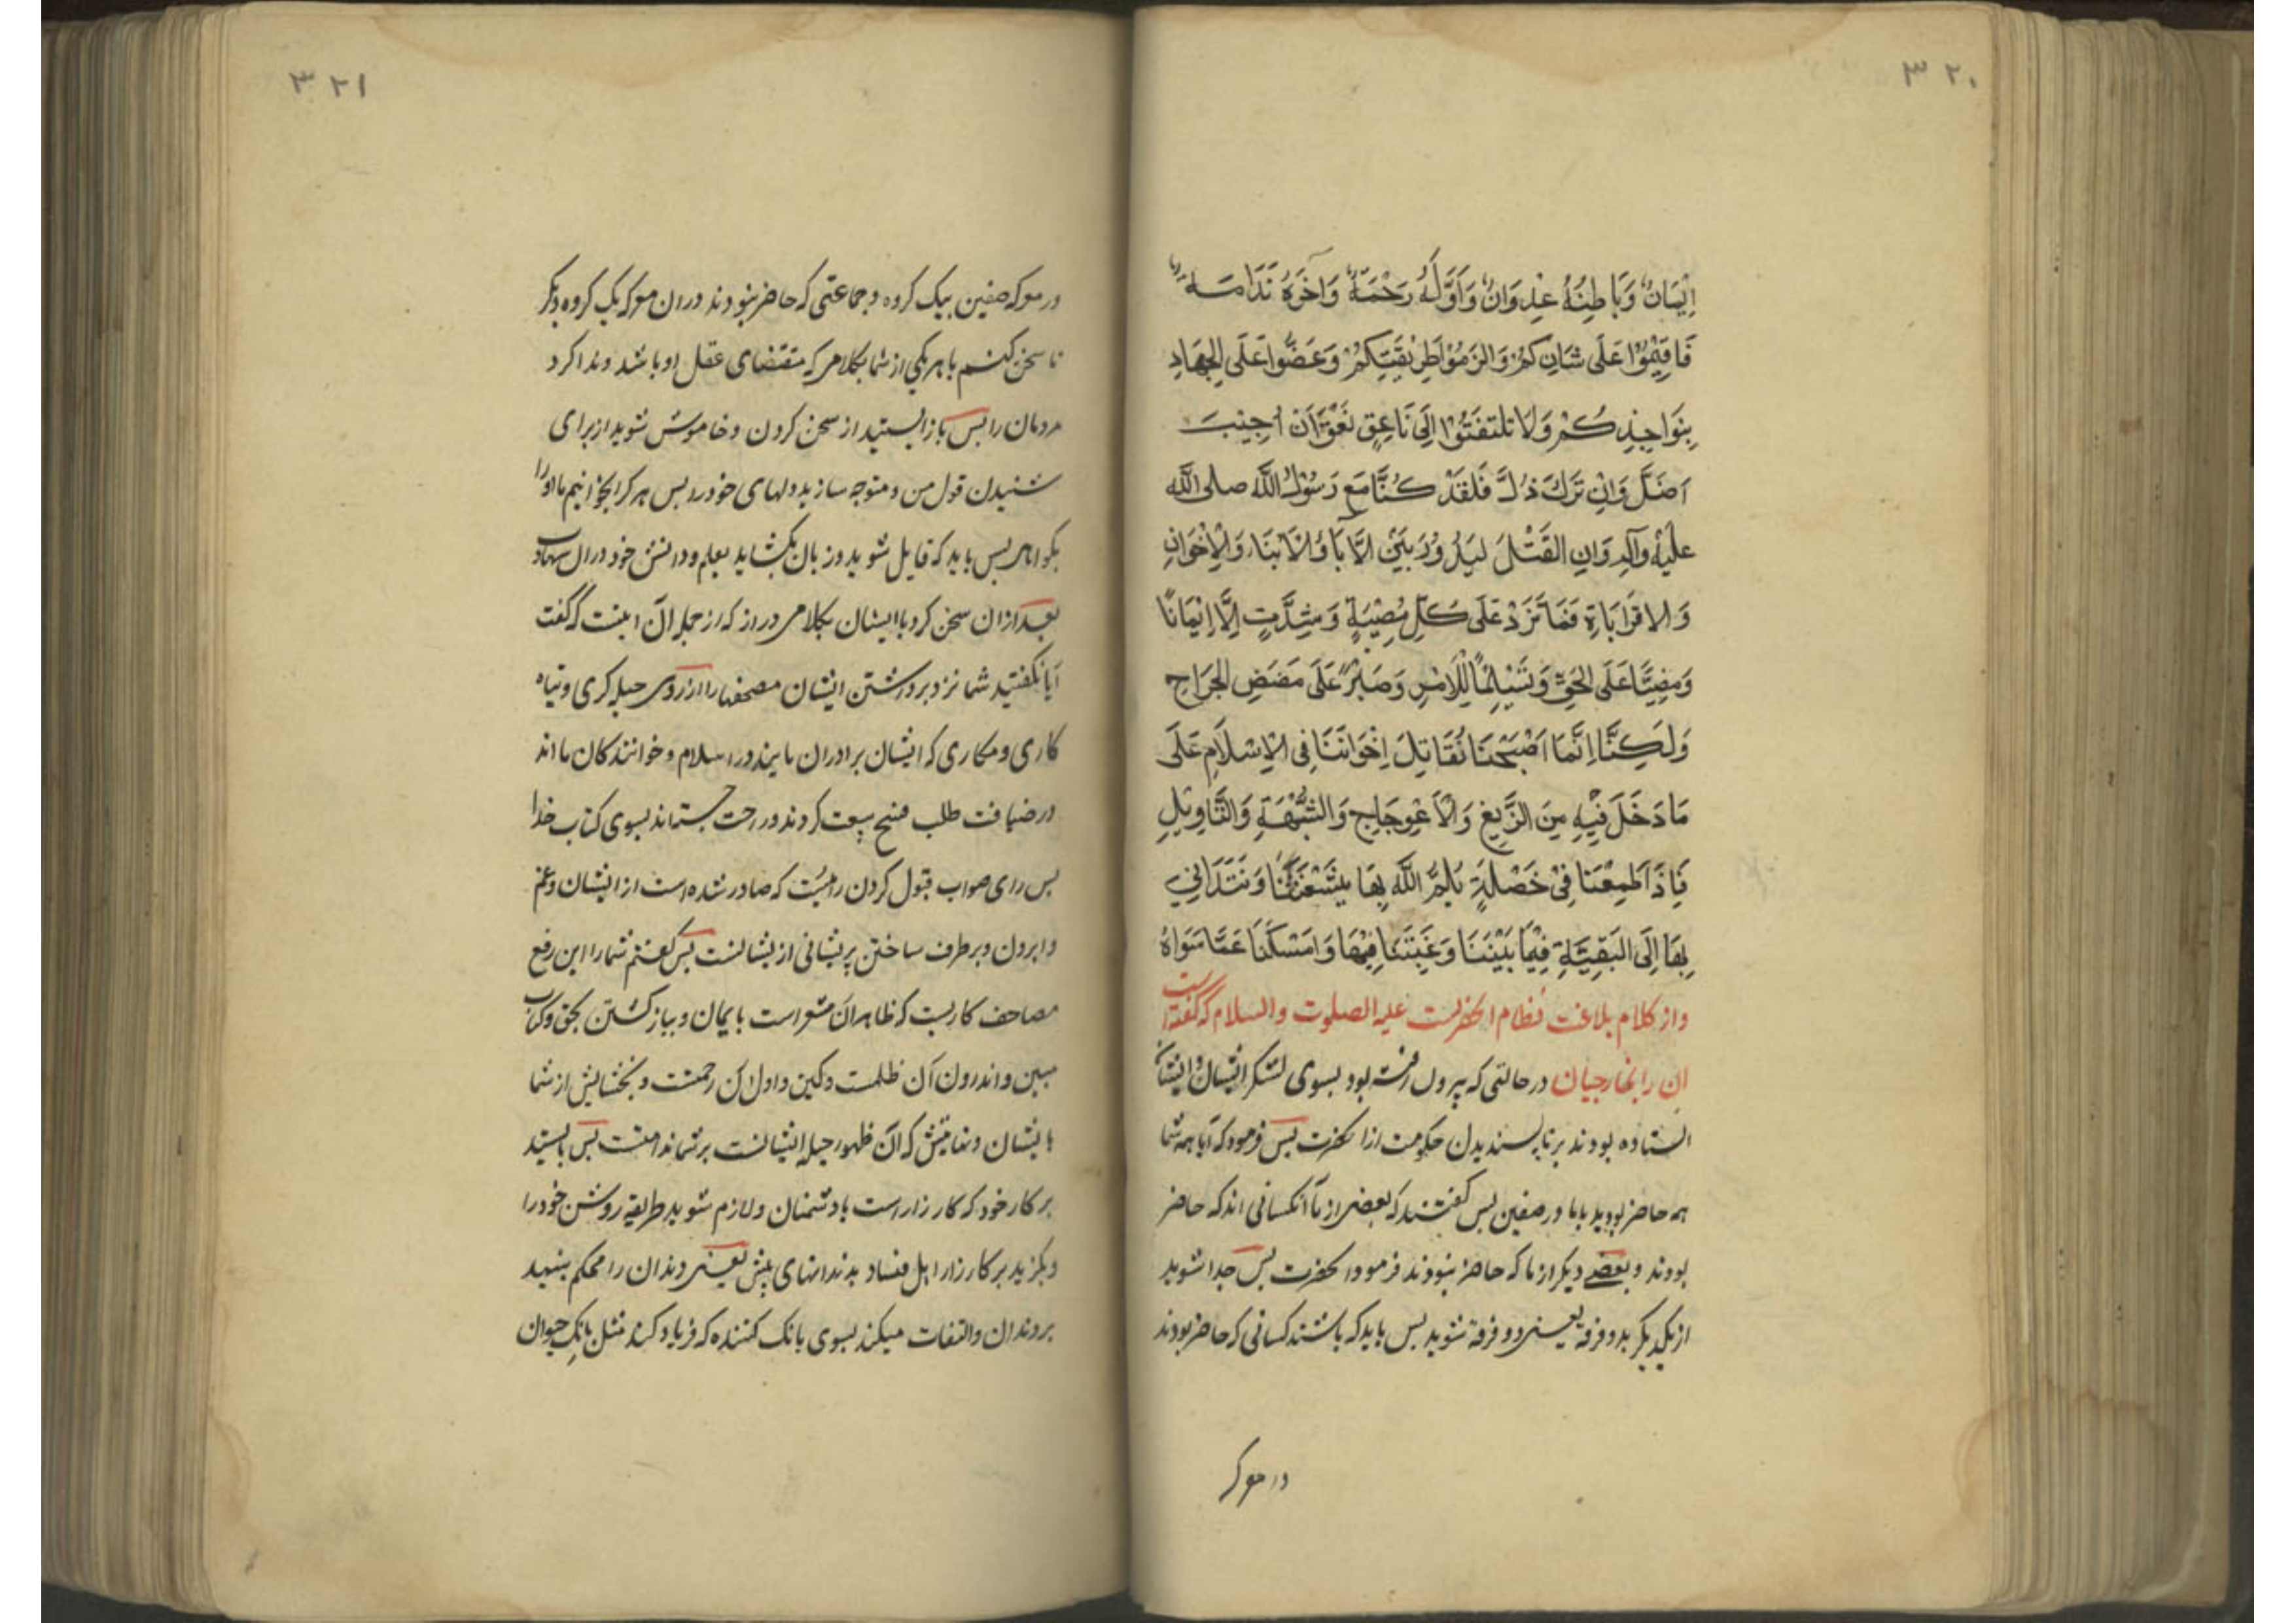 ۳۲۰
اِیْمَانٌ وَبَاطِنُهُ عِدْوَانٌ وَاَوَّلُهُ رَحْمَةٌ وَآخِرُهُ نَدَامَـة
فَاَقِیْمُوْا عَلَی شَانِکُمْ وَالزَمُوْا طَرِیْقَتَکُمْ وَعَضُّوا عَلَی الجِهَادِ
بِنَوَاجِذِکُمْ وَلَا تلتفتُوْا اِلَی نَاعِقٍ نَعَقَ اِنْ اُجِیْبَ
اَضَلَّ وَاِنْ تُرِکَ ذَلَّ فَلَقَدْ کُنَّا مَعَ رَسُوْلِ اللّٰه صلی اللّٰه
علیْهِ وآلهِ وَاِنَ القَتْلَ لیَدُوْرُ بَیْنَ الآبَاءِ وَالاَبْنَاءِ وَالْاِخْوَانِ
وَالاقْرَابَاةِ فَمَا نَزْدْ عَلَی کُلِّ مُصِیْبَةٍ وَشِدَّتٍ اِلَّا اِیْمَانًا
وَمُضِیًّا عَلَی الحَقِّ وَتَسْلِیْمًا لِلْاَمْرِ وَصَبْرًا عَلَی مَضَضِ الجِرَاحِ
وَلَکِنَّا اِنَّمَا اَصْبَحْنَا نُقَاتِلَ اِخْوَانَنَا فِی الْاِسْلَامِ عَلَی
مَا دَخَلَ فِیْهِ مِنَ الزَّیغِ وَالْاَعْوِجَاجِ وَالشُّبْهَةِ وَالتَّاوِیْلِ
فَاِذَا طَمِعْنَا فِیْ خَصْلَةٍ یَلُمُّ اللّٰه بِهَا شَعْثَنَا وَنَتَدَانِیْ
بِهَا اِلَی البَقِیَّةِ فِیْمَا بَیْنَنَا وَرَغِبْنَا فِیْهَا وَامْسَکْنَا عَمَّا سَوَاهُ
واز کلام بلاغت نظام انحضرلست علیه الصلوت والسلام که گفته است
ان را بخارجیان درحالتی که بیرون رفته بود بسوی لشکر ایشان و ایشان
استاده بودند برنا پسندیدن حکومت ازانحضرت پس فرمود که آیا همه شما
همه حاضر بودید باما در صفین پس گفتند که بعضی از ما آنکسانی اند که حاضر
بودند و بعضے دیگر از ما که حاضر نبودند فرمود انحضرت پس جدا شوید
از یکدیگر بدو فرقه یعنی دو فرقة شوید پس باید که باشند کسانی که حاضر بودند
در معرکه
۳۲۱
در معرکه صفین بیک کروه و جماعتی که حاضر نبودند دران معرکه یک کروه دیگر
تا سخن کنم با هر یکی از شما بکلامی که مقتضای عقل او باشد و ندا کرد
مردمان را پس باز ایستید از سخن کردن و خاموش شوید از برای
شنیدن قول من و متوجه سازید دلهای خود را پس هر کرا بخوانیم ما او را
بکواهی پس باید که قایل شوید و زبان بکشاید بعلم و دانش خود دران شهادت
بعد ازان سخن کرد با ایشان بکلامی دراز که از جمله آن اینست که گفت
آیا نکفتید شما نزد برداشتن ایشان مصحفها را از روی حیله کری و تباه
کاری و مکاری که ایشان برادران مایند در اسلام و خوانندکان ما اند
در ضیافت طلب فسخ بیعت کردند و راحت جستماند بسوی کتاب خدا
پس رای صواب قبول کردن راهیست که صادر شده است از ایشان و غم
وابرون و برطرف ساختن پریشانی از یشانست پس کفتم شما را این رفع
مصاحف کاریست که ظاهر آن مشعر است بایمان و بباز کشتن بحق و کتاب
مبین و اندرون آن ظلمت و کین و اول آن رحمتست و بخشایش از شما
بایشان و نهایتش که آن ظهور حیله ایشانست بر شما ندامتست پس بایستید
بر کار خود که کارزار است با دشمنان و لازم شوید طریقه روشن خود را
و بکزید بر کارزار اهل فساد بدندانهای پیش یعنی دندان را محکم بنهید
بر دندان و التفات میکند بسوی بانک کننده که فریاد کند مثل بانک حیوان